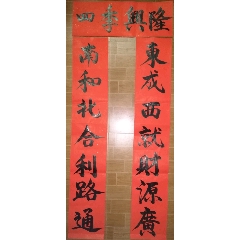 四季興隆
東成西就財源廣
南和北合利路通